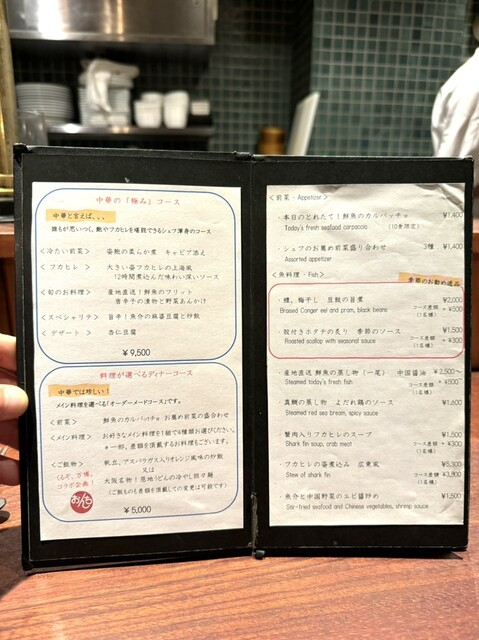 中華の「極み」コース
中華と言えば、、、
誰もが思いつく、鮑やフカヒレを堪能できるシェフ渾身のコース
<冷たい前菜> 姿鮑の柔らか煮 キャビア添え
<フカヒレ> 大きい姿フカヒレの上海風
12時間炊込んだ味わい深いソース
<旬のお料理> 産地直送!鮮魚のフリット
唐辛子の漬物と野菜あんかけ
<スペシャリテ> 旨辛!魚介の麻婆豆腐と炒飯
<デザート> 杏仁豆腐
¥9,500
料理が選べるディナーコース
中華では珍しい!
メイン料理を選べる「オーダーメードコース」です。
<前菜> 鮮魚のカルパッチョ お薦め前菜の盛合わせ
<メイン料理> お好きなメイン料理を1組で4種類お選びください。
※一部、差額を頂戴するお料理もございます。
<ご飯物> 帆立、アスパラガス入りオレンジ風味の炒飯
又は
大阪名物!恩地うどんの冷やし担々麺
(ご飯ものも差額を頂戴しての変更は可能です)
くるぞ、万博、
コラボ企画!
おんち
¥5,000
<前菜・Appetizer>
・本日のとれたて!鮮魚のカルパッチョ ¥1,400
Today's fresh seafood carpaccio (10食限定)
・シェフのお薦め前菜盛り合わせ 3種 ¥1,400
Assorted appetizer
<魚料理・Fish>
季節のお勧め逸品
・鱧、梅干し 豆豉の旨煮 ¥2,000
Braised Conger eel and pram, black beans コース差額 +¥500
(1名様)
・殻付きホタテの炙り 季節のソース ¥1,500
Roasted scallop with seasonal sauce コース差額 +¥300
(1名様)
産地直送 鮮魚の蒸し物(一尾) 中国醤油 ¥2,500~
Steamed today's fresh fish コース差額 +¥500~
(1名様)
・真鯛の蒸し物 よだれ鶏のソース ¥1,600
Steamed red sea bream, spicy sauce
・蟹肉入りフカヒレのスープ ¥1,500
Shark fin soup, crab meat コース差額 +¥300
(1名様)
・フカヒレの姿煮込み 広東風
Stew of shark fin コース差額
(1名様)
・魚介と中国野菜のエビ醤炒め ¥1,500
Stir-fried seafood and Chinese vegetables, shrimp sauce